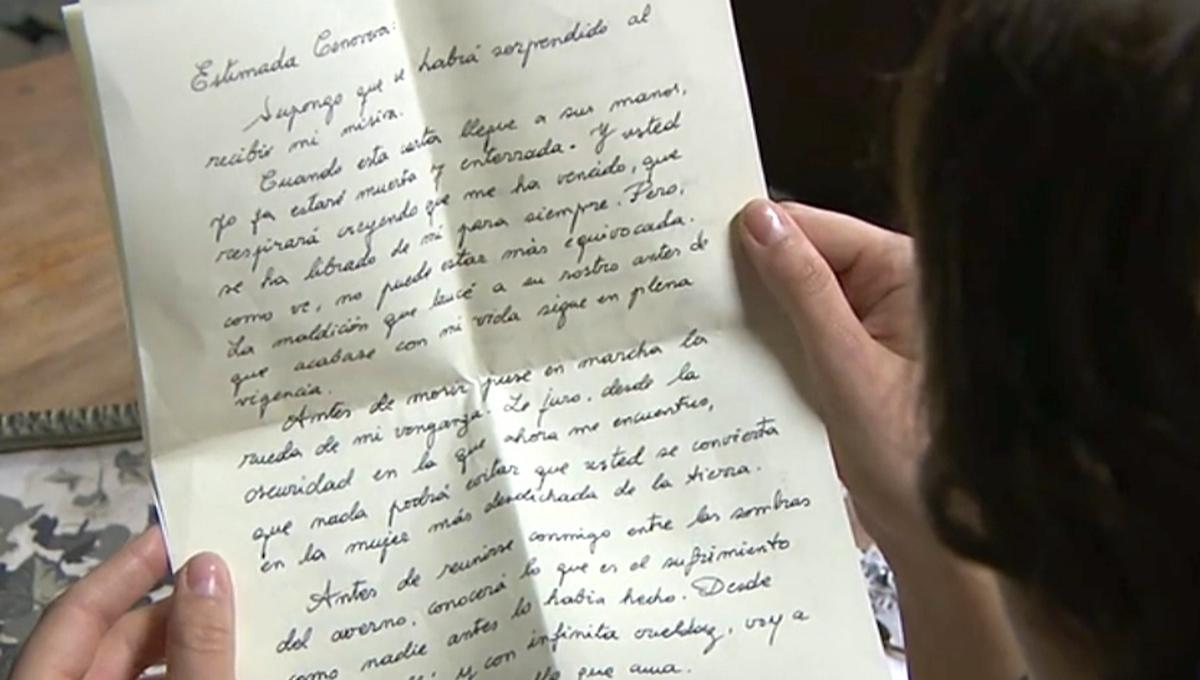 Estimada Genoveva:
Supongo que se habrá sorprendido al
recibir mi misiva.
Cuando esta carta llegue a sus manos,
yo ya estaré muerta y enterrada. Y usted
respirará creyendo que me ha vencido, que
se ha librado de mí para siempre. Pero,
como ve, no puede estar más equivocada.
La maldición que lancé a su rostro antes de
que acabase con mi vida sigue en plena
vigencia.
Antes de morir puse en marcha la
rueda de mi venganza. Le juro, desde la
oscuridad en la que ahora me encuentro,
que nada podrá evitar que usted se convierta
en la mujer más desdichada de la tierra.
Antes de reunirse conmigo entre las sombras
del averno, conocerá lo que es el sufrimiento
como nadie antes lo había hecho. Desde
y con infinita crueldad, voy a
que ama.